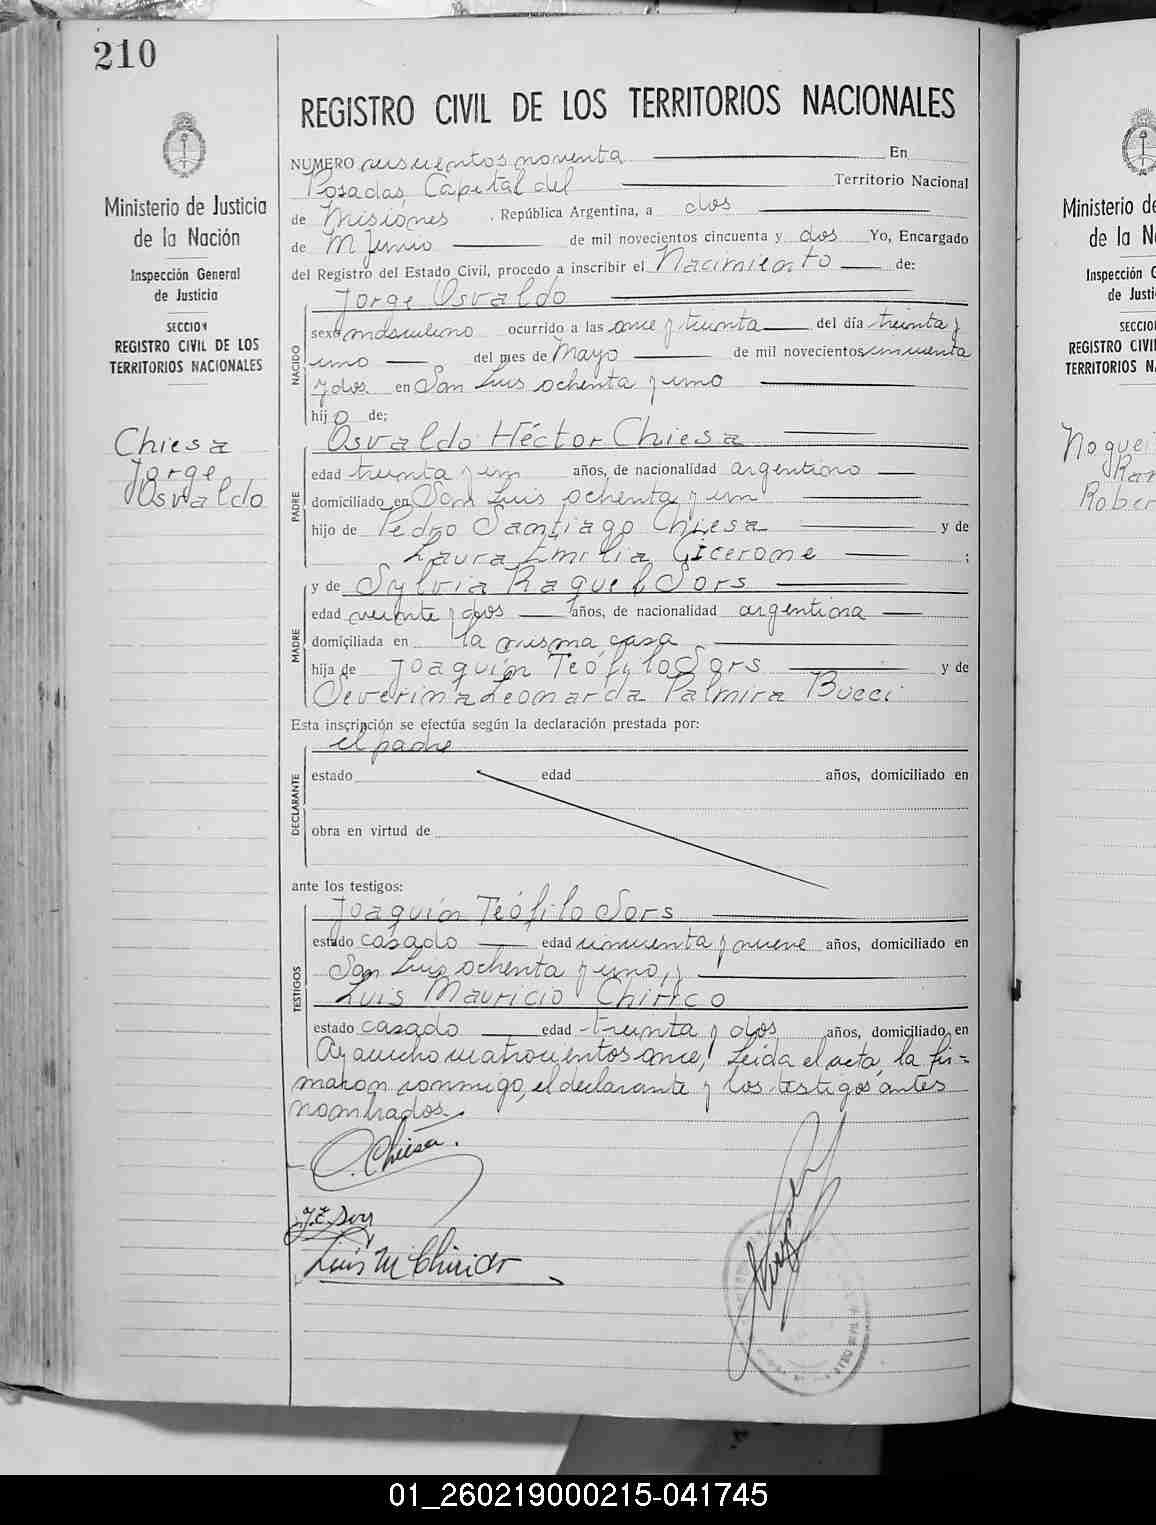 210
REGISTRO CIVIL DE LOS TERRITORIOS NACIONALES
Ministerio de Justicia
de la Nación
Inspección General
de Justicia
SECCION
REGISTRO CIVIL DE LOS
TERRITORIOS NACIONALES
Chiesa
Jorge
Osvaldo
NUMERO seiscientos noventa En
Posadas, Capital del Territorio Nacional
de Misiones , República Argentina, a dos
de Junio de mil novecientos cincuenta y dos Yo, Encargado
del Registro del Estado Civil, procedo a inscribir el Nacimiento de:
NACIDO
Jorge Osvaldo
sexo masculino ocurrido a las once y treinta del día treinta y
uno del mes de Mayo de mil novecientos cincuenta
y dos en San Luis ochenta y uno
hijo de;
PADRE
Osvaldo Héctor Chiesa
edad treinta y un años, de nacionalidad argentino
domiciliado en San Luis ochenta y un
hijo de Pedro Santiago Chiesa y de
Laura Emilia Cicerone ;
MADRE
y de Sylvia Raquel Sors
edad veinte y dos años, de nacionalidad argentina
domiciliada en la misma casa
hija de Joaquín Teófilo Sors y de
Severina Leonarda Palmira Bucci
Esta inscripción se efectúa según la declaración prestada por:
DECLARANTE
el padre
estado edad años, domiciliado en
obra en virtud de
ante los testigos:
TESTIGOS
Joaquín Teófilo Sors
estado casado edad cincuenta y nueve años, domiciliado en
San Luis ochenta y uno, y
Luis Mauricio Chirico
estado casado edad treinta y dos años, domiciliado en
Ayacucho cuatrocientos once, Leida el acta, la fir=
maron conmigo, el declarante y los testigos antes
nombrados.
O. Chiesa.
Luis M Chirico
Ministerio de
de la N
Inspección G
de Justi
SECCIO
REGISTRO CIVI
TERRITORIOS N
Noguei
Rober
01_260219000215-041745